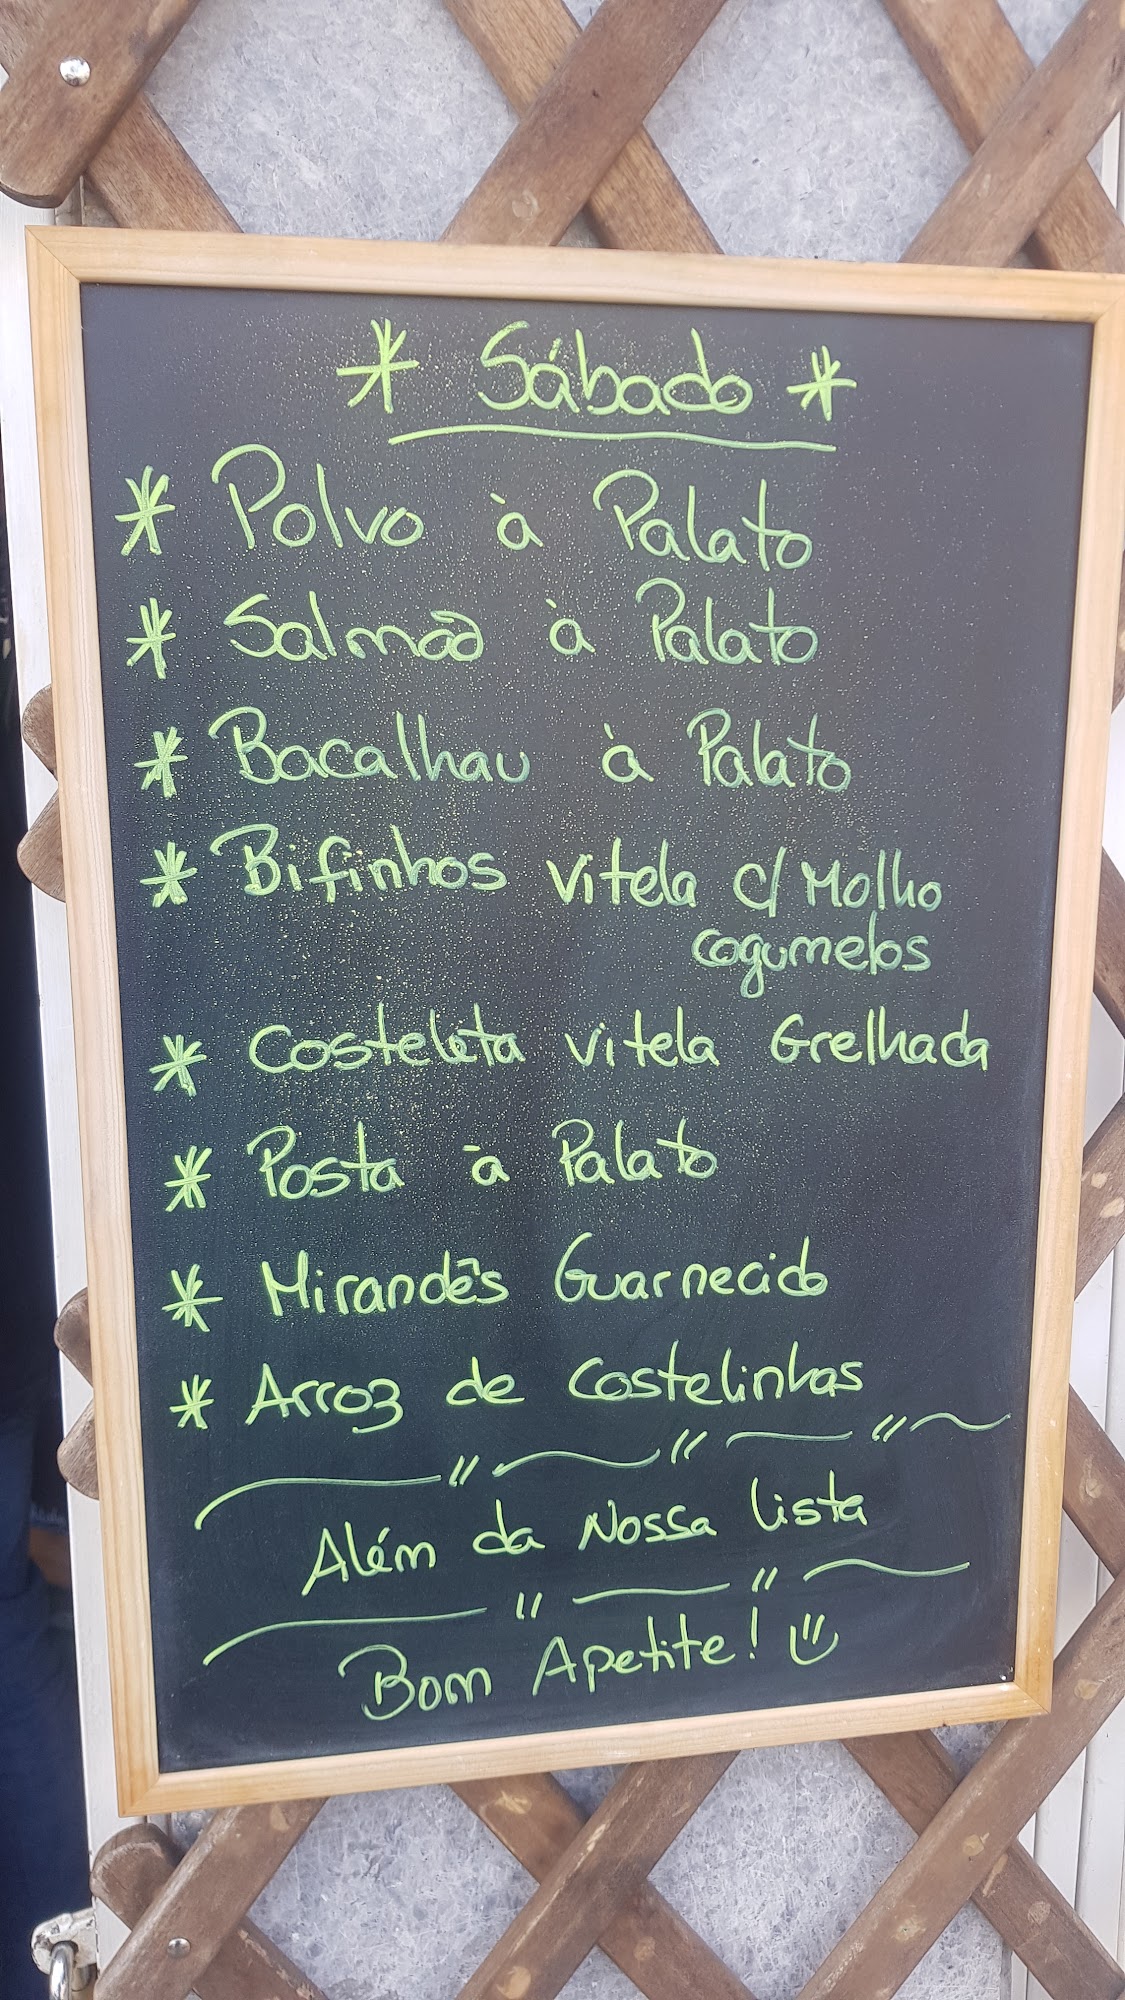 * Sábado *
* Polvo à Palato
* Salmão à Palato
* Bacalhau à Palato
* Bifinhos vitela c/ Molho
cogumelos
* Costeleta vitela Grelhada
* Posta à Palato
* Mirandês Guarnecido
* Arroz de Costelinhas
Além da Nossa lista
Bom Apetite!